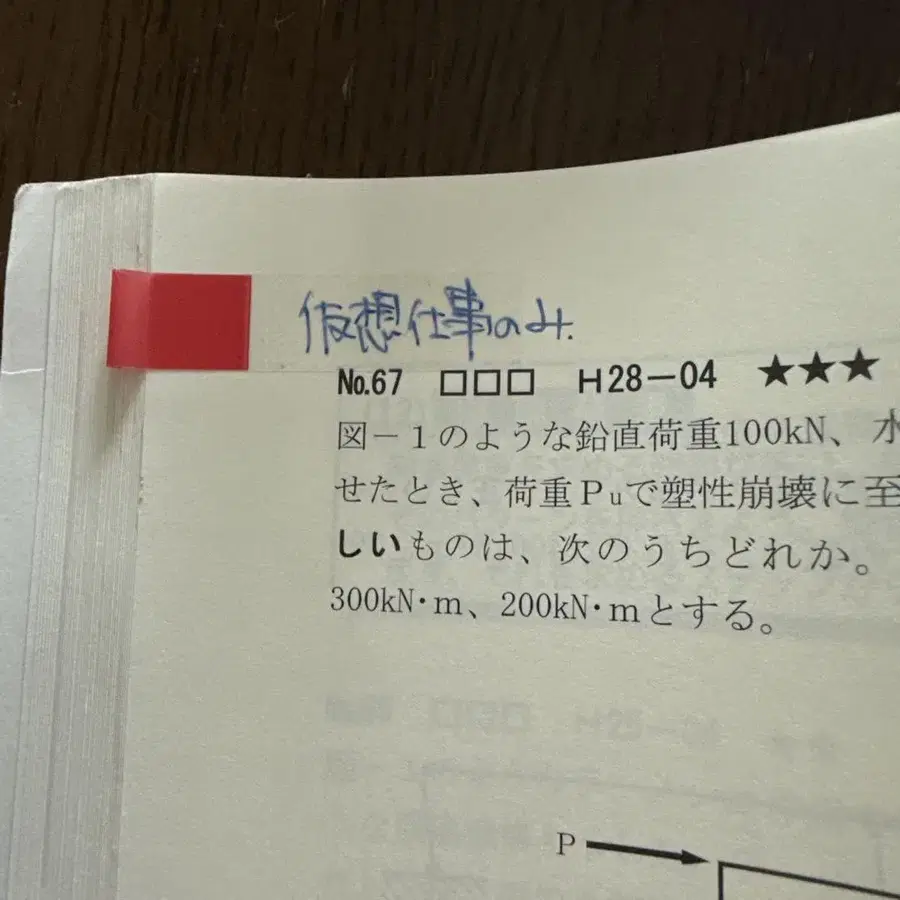 仮想仕事のみ.
No.67 □□□ H28-04 ★★★
図-1のような鉛直荷重100kN、水
せたとき、荷重Puで塑性崩壊に至
しいものは、次のうちどれか。
300kN・m、200kN・mとする。
P